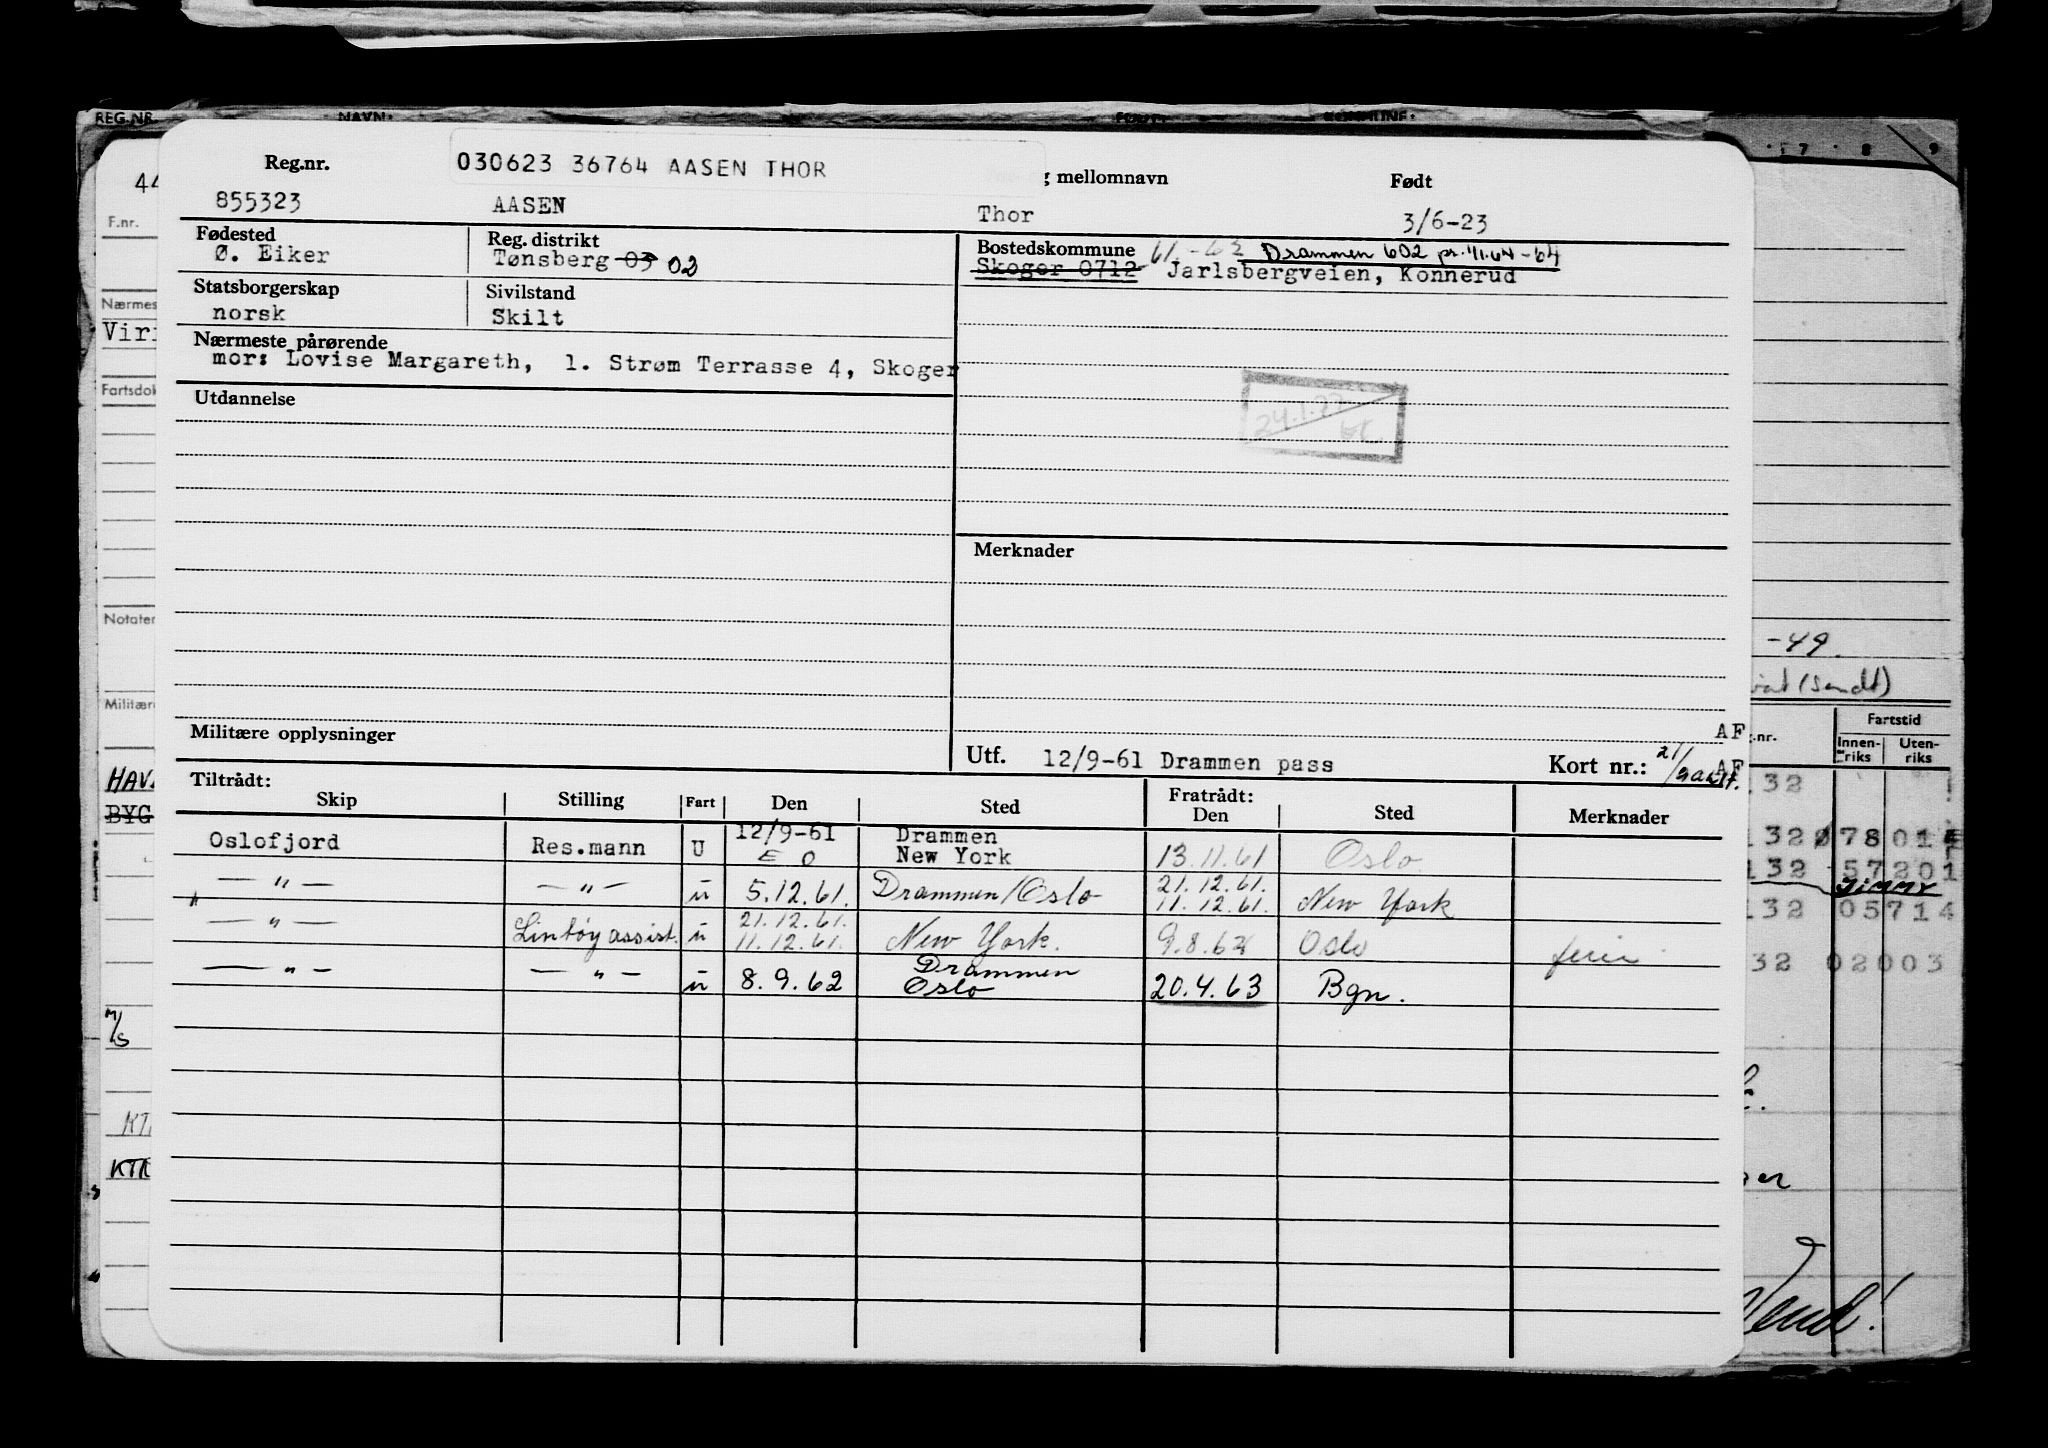 REG.NR. NAVN: FØDT: KOMMUNE:
030623 36764 AASEN THOR
Reg.nr. mellomnavn Født
855323 AASEN Thor 3/6-23
Fødested Reg. distrikt Bostedskommune 61.-63 Drammen 602 pr. 1/1.64-64
Ø. Eiker Tønsberg 03 02 Skoger 0712 Jarlsbergveien, Konnerud
Statsborgerskap Sivilstand
norsk Skilt
Nærmeste pårørende
mor: Lovise Margareth, 1. Strøm Terrasse 4, Skoger
Utdannelse
24.1.77
Merknader
Militære opplysninger
AF
Utf. 12/9-61 Drammen pass Kort nr.: 21/
AF
Tiltrådt: Fratrådt:
Skip Stilling Fart Den Sted Den Sted Merknader
Oslofjord Res.mann U 12/9-61 Drammen
E O New York 13.11.61 Oslo
— " — — " — u 5.12.61. Drammen/Oslo 21.12.61.
11.12.61. New York
— " — Lintøyassist. u 21.12.61.
11.12.61. New York. 9.8.62 Oslo ferie
— " — — " — u 8.9.62 Drammen
Oslo 20.4.63 Bgn.
44
F.nr.
Nærmes
Virr
Fartsdok
Notater
Militære
HAV.
BYG
M/S
KT.
KTR
7 8 9
-49.
(sendt)
.nr. Fartstid
Innen-
riks
Uten-
riks
132
132 07801
132 57201
132 05714
32 02003
Vend!